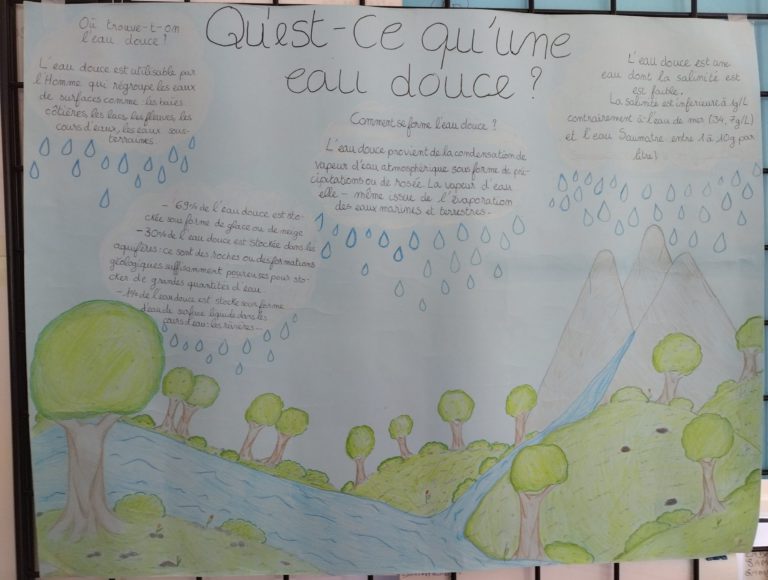 Qu'est-Ce qu'une
eau douce ?
Où trouve-t-on
l'eau douce ?
L'eau douce est utilisable par
l'Homme qui regroupe les eaux
de surfaces comme les baies
côtières, les lacs, les fleuves, les
cours d'eux, les eaux sous-
terraines.
- 69% de l'eau douce est sto-
ckée sous forme de glace ou de neige
- 30% de l'eau douce est stockée dans les
aquifères : ce sont des roches ou des formations
géologiques suffisamment poreuses pour sto-
cker de grandes quantités d'eau.
- 1% de l'eau douce est stocke sous forme
d'eau de surface liquide dans les
cours d'eau : les rivières...
Comment se forme l'eau douce ?
L'eau douce provient de la condensation de
vapeur d'eau atmosphérique sous forme de pré-
cipitations ou de rosée. La vapeur d'eau
elle-même issue de l'évaporation
des eaux marines et terrestres.
L'eau douce est une
eau dont la salinité est
est faible.
La salinité est inférieure à 1g/L
contrairement à l'eau de mer (34,7g/L)
et l'eau Saumatre entre 1 à 10g par
litre)